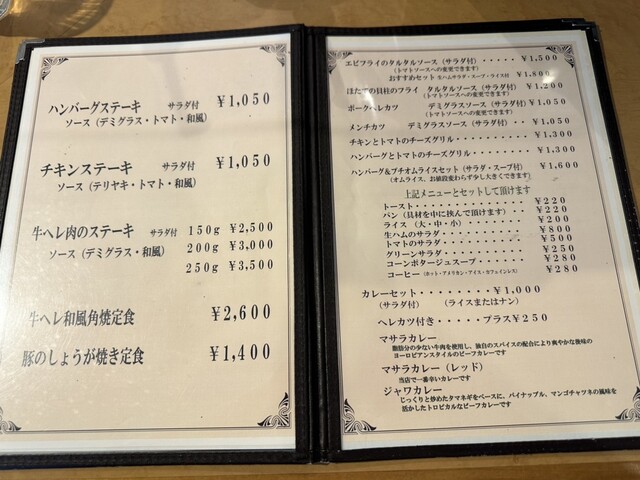 ハンバーグステーキ サラダ付 ¥1,050
ソース（デミグラス・トマト・和風）
チキンステーキ サラダ付 ¥1,050
ソース（テリヤキ・トマト・和風）
牛ヘレ肉のステーキ サラダ付 150g ¥2,500
ソース（デミグラス・和風） 200g ¥3,000
250g ¥3,500
牛ヘレ和風角焼定食 ¥2,600
豚のしょうが焼き定食 ¥1,400
エビフライのタルタルソース（サラダ付）・・・・・¥1,500
（トマトソースへの変更できます）
おすすめセット 生ハムサラダ・スープ・ライス付 ¥1,800
ほたての貝柱のフライ タルタルソース（サラダ付）¥1,200
（トマトソースへの変更できます）
ポークヘレカツ デミグラスソース（サラダ付）・¥1,050
（トマトソースへの変更できます）
メンチカツ デミグラスソース（サラダ付）・・¥1,050
チキンとトマトのチーズグリル・・・・・・・・¥1,300
ハンバーグとトマトのチーズグリル・・・・・・¥1,300
ハンバーグ&プチオムライスセット（サラダ・スープ付）・¥1,600
（オムライス、お値段変わらず少し大きくできます）
上記メニューとセットして頂けます
トースト・・・・・・・・・・・・¥220
パン（具材を中に挟んで頂けます）・・¥220
ライス（大・中・小）・・・・・・・¥200
生ハムのサラダ・・・・・・・・・¥800
トマトのサラダ・・・・・・・・・¥500
グリーンサラダ・・・・・・・・・¥250
コーンポタージュスープ・・・・・・¥280
コーヒー（ホット・アメリカン・アイス・カフェインレス） ¥280
カレーセット・・・・・・・・¥1,000
（サラダ付） （ライスまたはナン）
ヘレカツ付き・・・・・プラス¥250
マサラカレー
脂肪分の少ない牛肉を使用し、独自のスパイスの配合により爽やかな後味の
ヨーロピアンスタイルのビーフカレーです
マサラカレー（レッド）
当店で一番辛いカレーです
ジャワカレー
じっくりと炒めたタマネギをベースに、パイナップル、マンゴチャツネの風味を
活かしたトロピカルなビーフカレーです